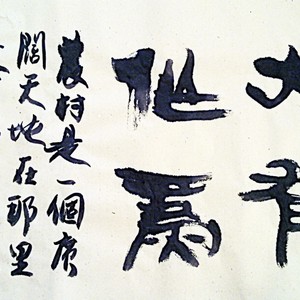 大有
作爲
農村是一個廣
闊天地在那里